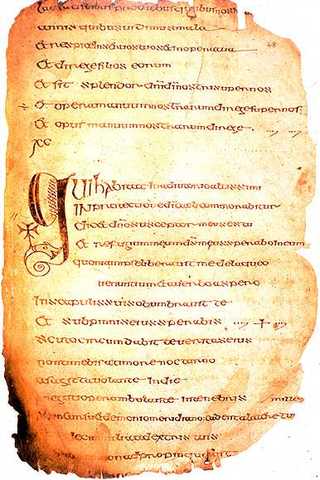 annis quibus uidimus mala
Et respice in seruos tuos et in opera tua
Et dirige filios eorum
Et sit splendor dni di nri super nos
Et opera manuum nostrarum dirige super nos
Et opus manuum nostrarum dirige
xc
Qui habitat in adiutorio altissimi
IN protectione di caeli commorabitur
Dicet dno susceptor meus es tu
Et refugium meum ds meus sperabo in eum
quoniam ipse liberabit me de laqueo
uenantium et a uerbo aspero
In scapulis suis obumbrabit te
Et sub pinnis eius sperabis
scuto circumdabit te ueritas eius
non timebis a timore nocturno
a sagitta uolante in die
negotio perambulante in tenebris
demonio meridiano cadent a latere tuo
decem milia a dextris tuis